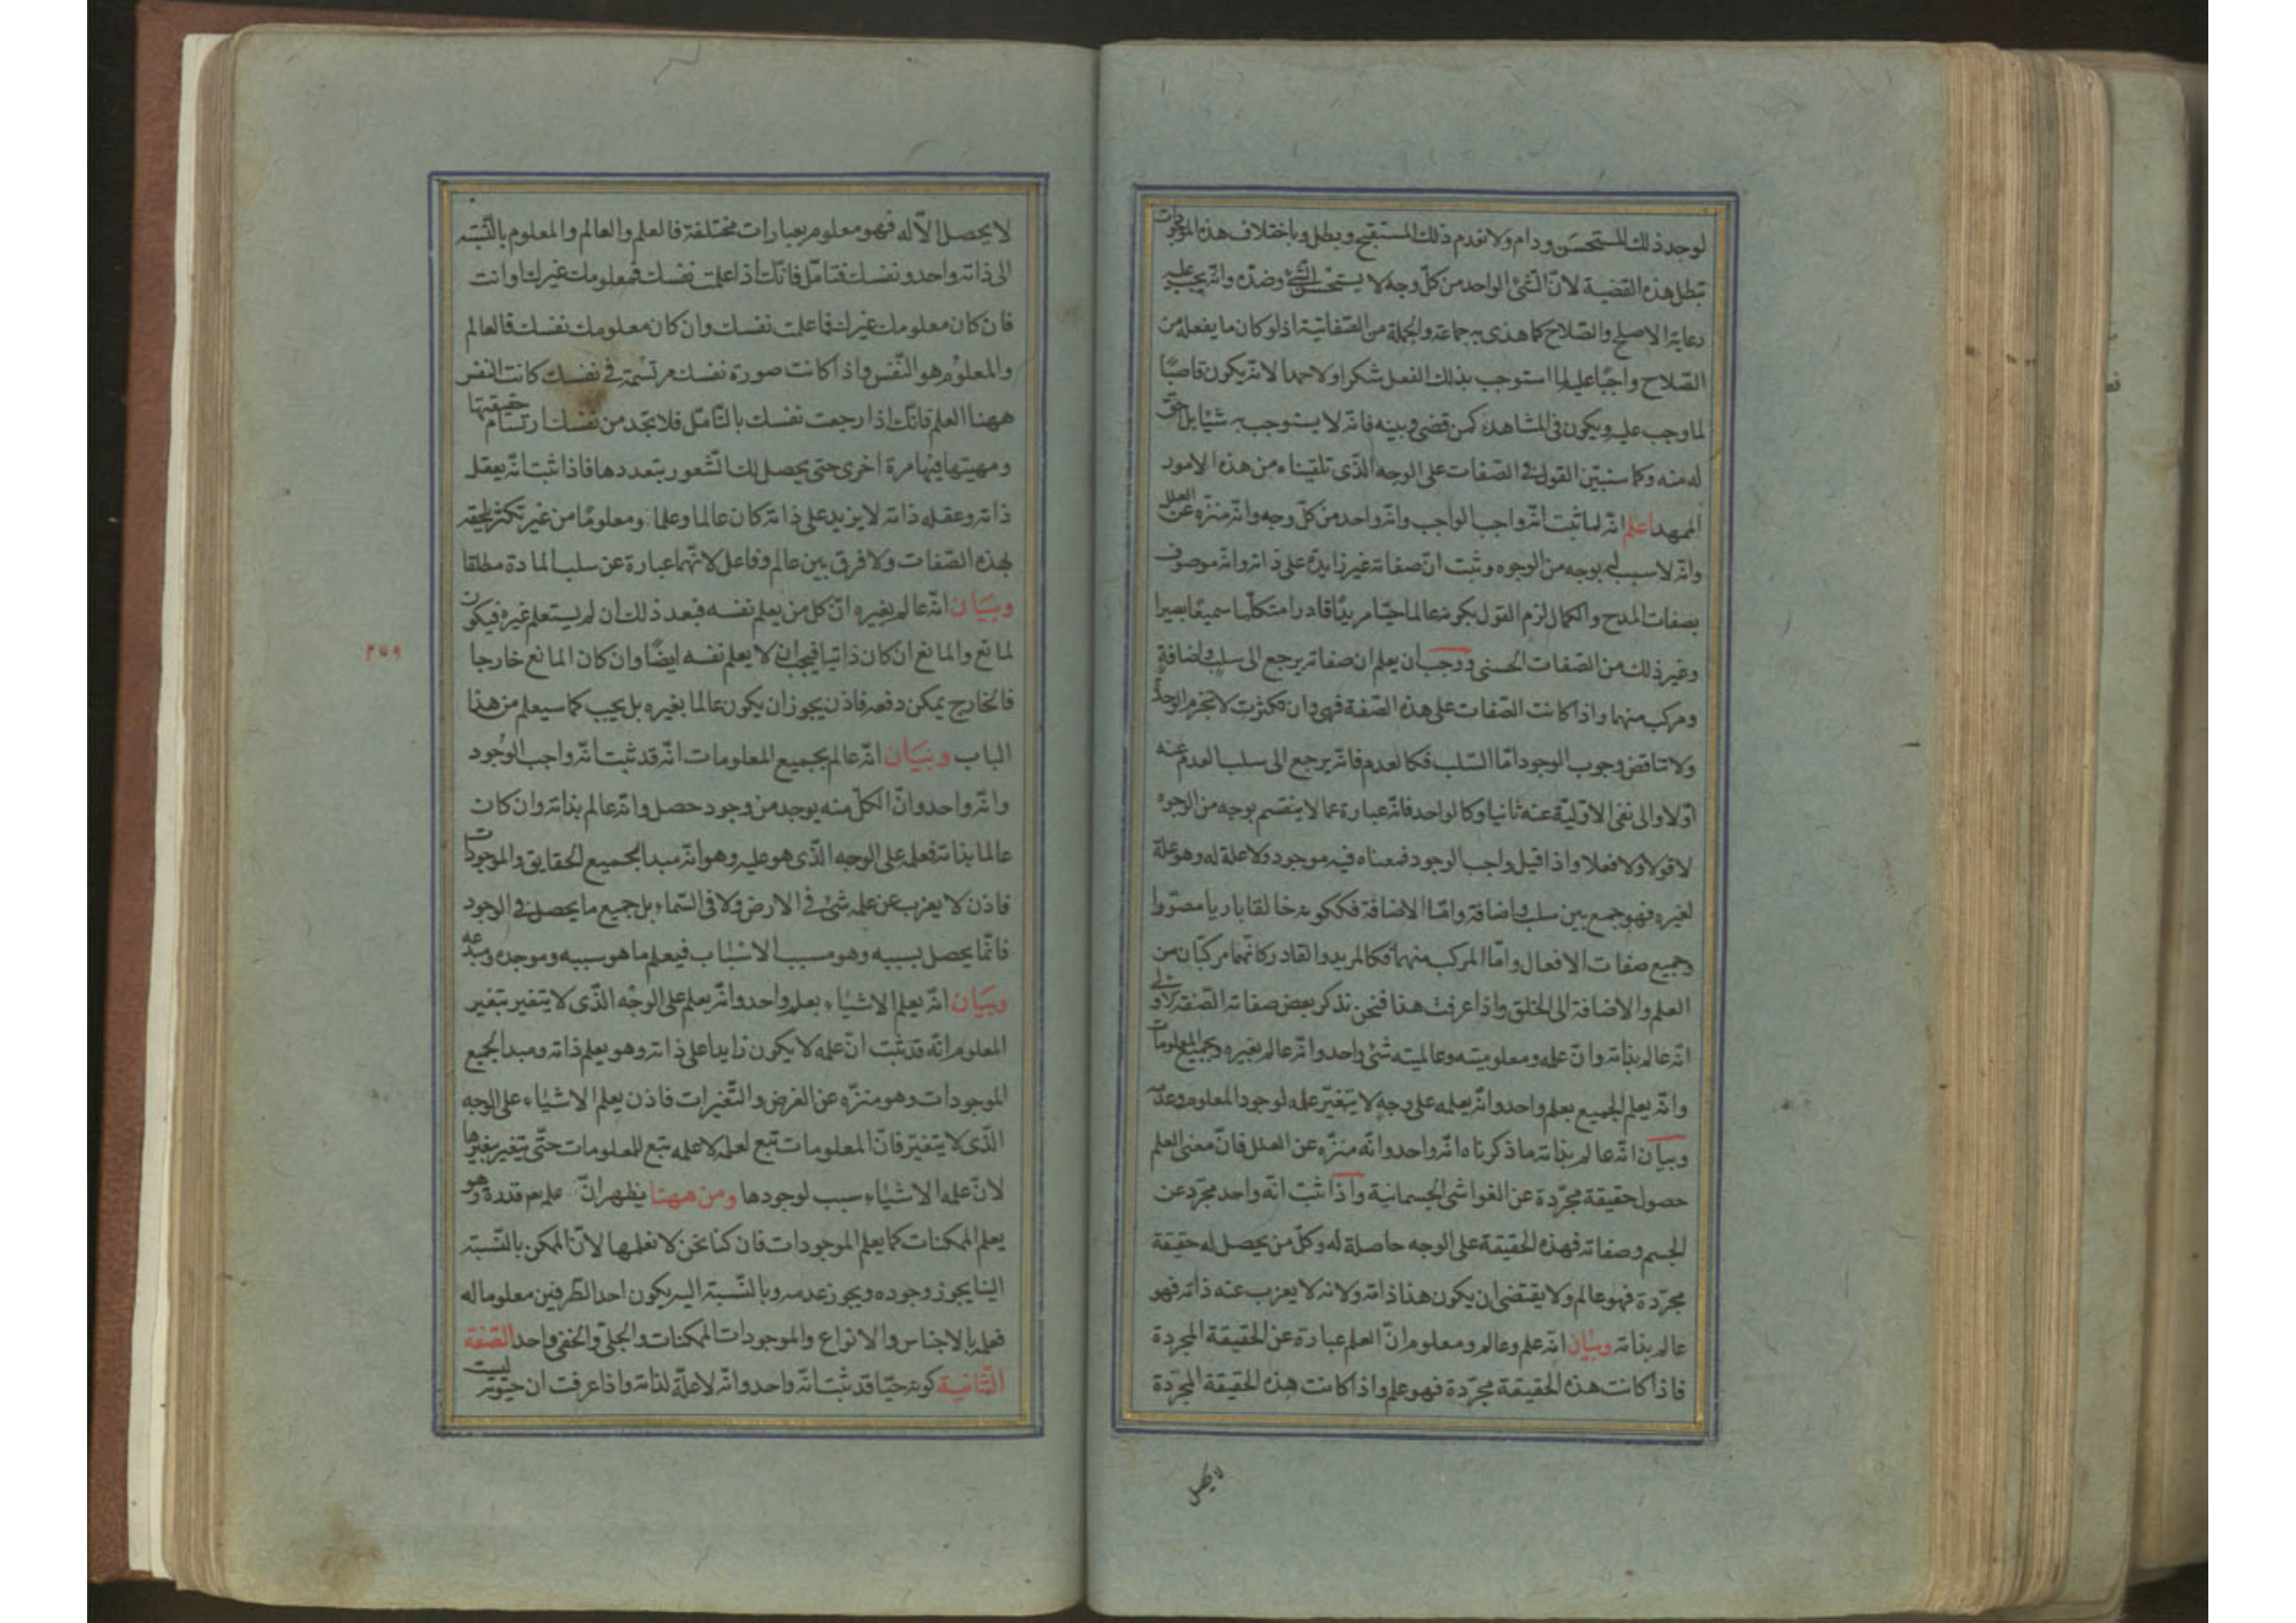 لوجد ذلك المستحسن ودام ولانعدم ذلك المستقبح وبطل وباختلاف هذه الموجودات
تبطل هذه القضية لان الشئ الواحد من كل وجه لا يستحسن الشئ وضده وانه يجب عليه
رعاية الاصلح والصلاح كما هذى به جماعة والجملة من الصفاتية اذ لو كان ما يفعله من
الصلاح واجبا عليه لما استوجب بذلك الفعل شكرا ولا حمدا لانه يكون قاضيا
لما وجب عليه ويكون فى المشاهد كمن قضى دينه فانه لا يستوجب به شيئا بل حق
له منه وكما سنبين القول فى الصفات على الوجه الذى تلقيناه من هذه الامور
الممهد اعلم انه لما ثبت انه واجب الواجب وانه واحد من كل وجه وانه منزه عن العلل
وانه لا سبب له بوجه من الوجوه وثبت ان صفاته غير زايدة على ذاته وانه موصوف
بصفات المدح والكمال لزم القول بكونه عالما حيا مريدا قادرا متكلما سميعا بصيرا
وغير ذلك من الصفات الحسنى ووجب ان يعلم ان صفاته يرجع الى سلب واضافة
ومركب منهما واذا كانت الصفات على هذه الصفة فهى وان تكثرت لا تخرم الوحدة
ولا تناقض وجوب الوجود اما السلب فكالعدم فانه يرجع الى سلب العدم عنه
اولا والى نفى الاولية عنه ثانيا وكالواحد فانه عبارة عما لا ينقسم بوجه من الوجوه
لا قولا ولا فعلا واذا قيل واجب الوجود فمعناه فيه موجود ولا علة له وهو علة
لغيره فهو جمع بين سلب واضافة واما الاضافة فككونه خالقا باريا مصورا
وجميع صفات الافعال واما المركب منهما فكالمريد والقادر كانهما مركبان من
العلم والاضافة الى الخلق واذا عرفت هذا فنحن نذكر بعض صفاته الصفة الاولى
انه عالم بذاته وان علمه ومعلوميته وعالميته شئ واحد وانه عالم بغيره وبجميع المعلومات
وانه يعلم الجميع بعلم واحد وانه يعلمه على وجه لا يتغير علمه لوجود المعلوم وعدمه
وبيان انه عالم بذاته ما ذكرناه انه واحد وانه منزه عن العلل فان معنى العلم
حصول حقيقة مجردة عن الغواشى الجسمانية واذا ثبت انه واحد مجرد عن
الجسم وصفاته فهذه الحقيقة على الوجه حاصلة له وكل من يحصل له حقيقة
مجردة فهو عالم ولا يقتضى ان يكون هذا ذاته ولانه لا يعزب عنه ذاته فهو
عالم بذاته وبيان انه علم وعالم ومعلوم ان العلم عبارة عن الحقيقة المجردة
فاذا كانت هذه الحقيقة مجردة فهو علم واذا كانت هذه الحقيقة المجردة
لا يحصل
لا يحصل الا له فهو معلوم بعبارات مختلفة فالعلم والعالم والمعلوم بالنسبة
الى ذاته واحد ونفسك فتامل فانك اذا علمت نفسك فمعلومك غيرك او انت
فان كان معلومك غيرك فما علمت نفسك وان كان معلومك نفسك فالعالم
والمعلوم هو النفس واذا كانت صورة نفسك مرتسمة فى نفسك كانت النفس
ههنا العلم فانك اذا رجعت نفسك بالتامل فلا تجد من نفسك ارتسام حقيقتها
ومهيتها فيها مرة اخرى حتى يحصل لك الشعور بتعددها فاذا ثبت انه يعقل
ذاته وعقله ذاته لا يزيد على ذاته كان عالما وعلما ومعلوما من غير تكثر يلحقه
بهذه الصفات ولا فرق بين عالم وفاعل لانهما عبارة عن سلب المادة مطلقا
وبيان انه عالم بغيره ان كل من يعلم نفسه فبعد ذلك ان لم يستعلم غيره فيكون
لمانع والمانع ان كان ذاتيا فيجب ان لا يعلم نفسه ايضا وان كان المانع خارجا
فالخارج يمكن دفعه فاذن يجوز ان يكون عالما بغيره بل يجب كما سيعلم من هذا
الباب وبيان انه عالم بجميع المعلومات انه قد ثبت انه واجب الوجود
وانه واحد وان الكل منه يوجد من وجود حصل وانه عالم بذاته وان كان
عالما بذاته فعلمه على الوجه الذى هو عليه وهو انه مبدا لجميع الحقايق والموجودات
فاذن لا يعزب عن علمه شئ فى الارض ولا فى السماء بل جميع ما يحصل فى الوجود
فانما يحصل بسببه وهو مسبب الاسباب فيعلم ما هو سببه وموجده ومبدعه
وبيان انه يعلم الاشياء بعلم واحد وانه يعلم على الوجه الذى لا يتغير بتغير
المعلوم انه قد ثبت ان علمه لا يكون زايدا على ذاته وهو يعلم ذاته ومبدا لجميع
الموجودات وهو منزه عن الغرض والتغيرات فاذن يعلم الاشياء على الوجه
الذى لا يتغير فان المعلومات تبع لعلمه لا علمه تبع للمعلومات حتى يتغير بتغيرها
لان علمه الاشياء سبب لوجودها ومن ههنا يظهر ان علمه قدرة وهو
يعلم الممكنات كما يعلم الموجودات فان كنا نحن لا نعلمها لان الممكن بالنسبة
الينا يجوز وجوده ويجوز عدمه وبالنسبة اليه يكون احد الطرفين معلوما له
فعلمه بالاجناس والانواع والموجودات الممكنات والجلى والخفى واحد الصفة
الثانية كونه حيا قد ثبت انه واحد وانه لا علة لذاته واذا عرفت ان حيوته ليست
٢٧٩